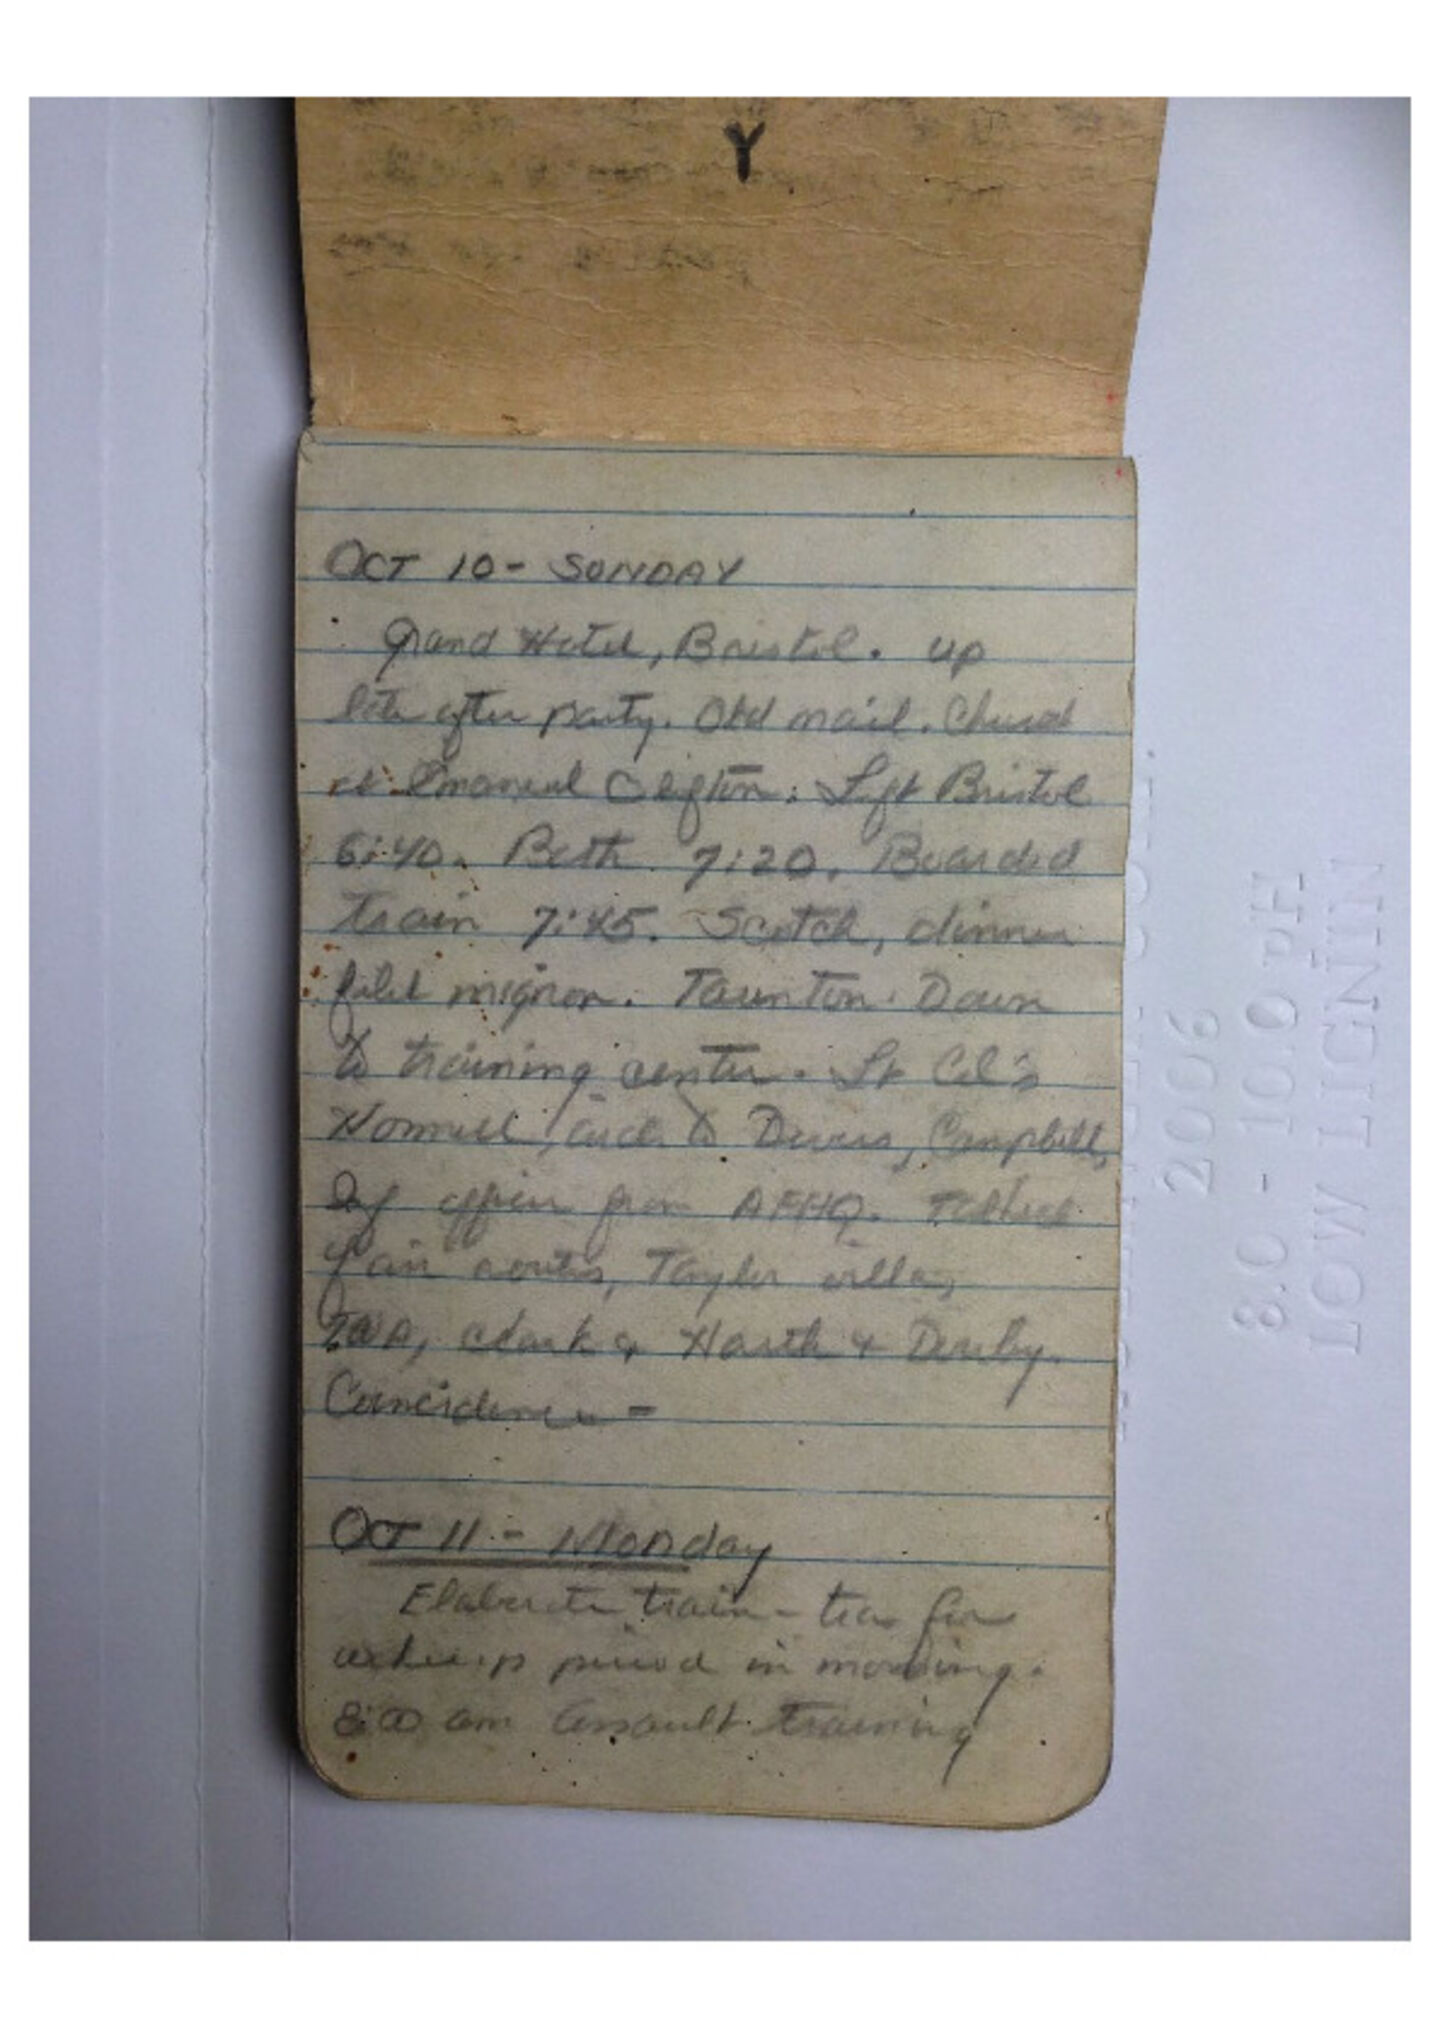 Y
OCT 10 - SUNDAY
Grand Hotel, Bristol. Up
late after party. Old mail. Church
at Emanuel Clifton. Left Bristol
6:40. Bath 7:20. Boarded
train 7:45. Scotch, dinner
filet mignon. Taunton. Down
to training center. Lt Col's
to Devers, Campbell,
officer from AFHQ. Talked
Taylor villa,
Clark &
Coincidence -
OCT 11 - Monday
Elaborate train - tea for
period in morning.
8:00 am Assault training
2006
8.0 - 10.0 pH
LOW LIGNIN